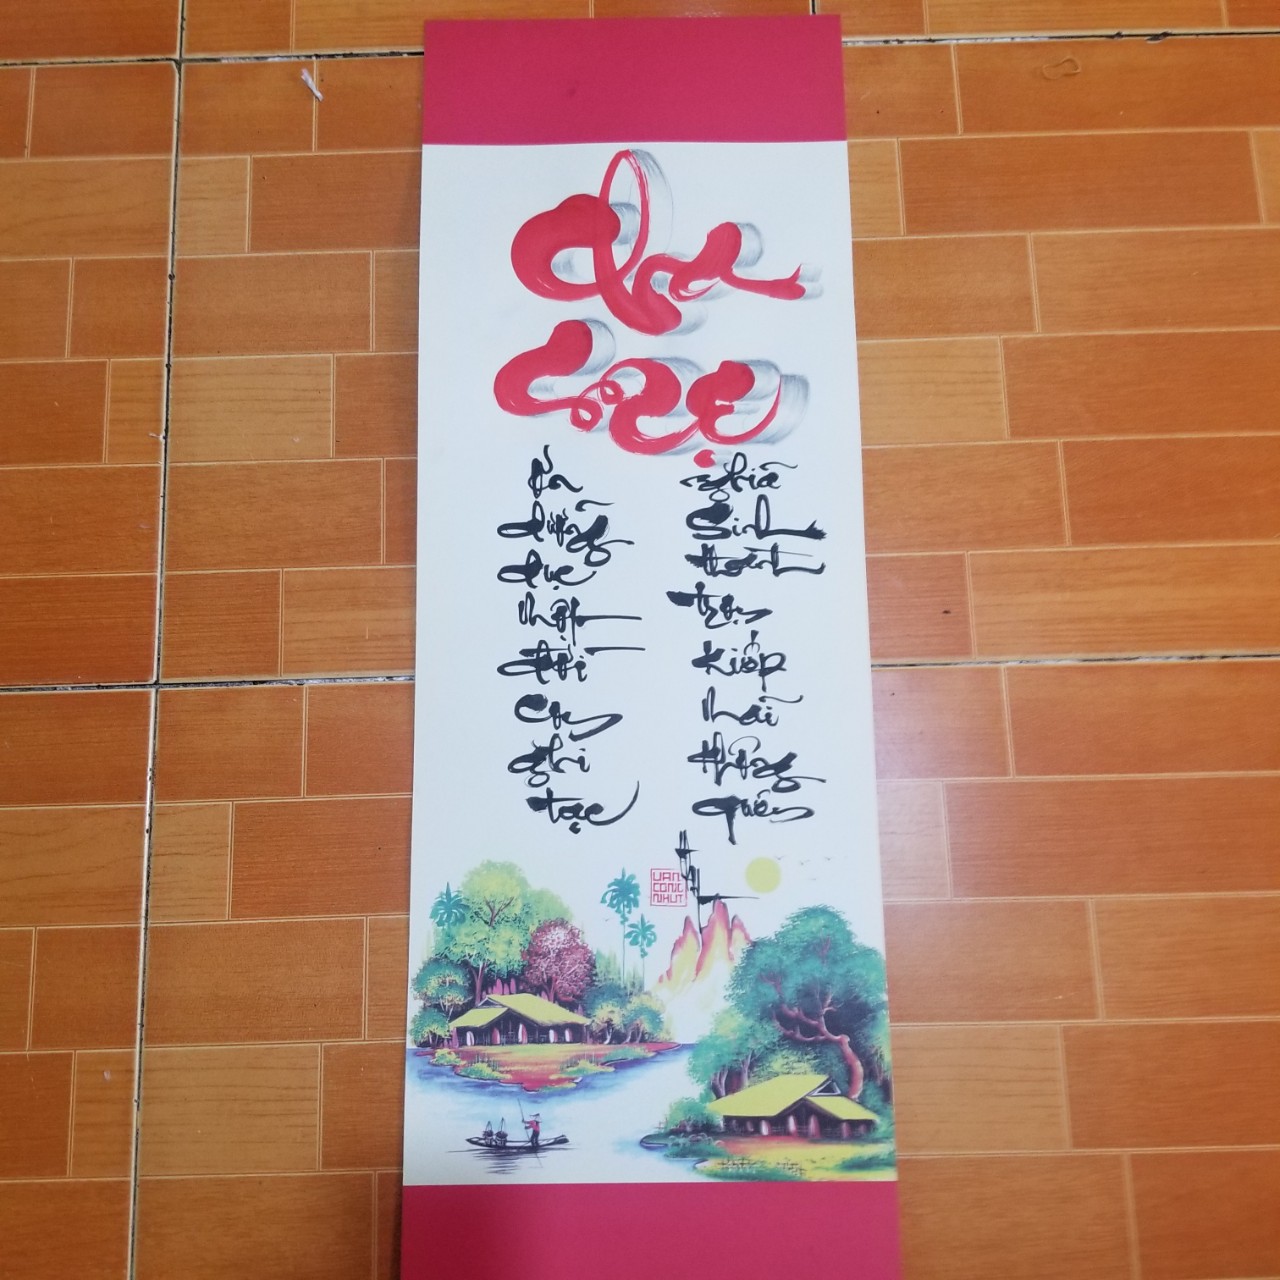 Cha
Mẹ
Ơn
dưỡng
dục
một
đời
con
ghi
tạc
nghĩa
Sinh
thành
trọn
kiếp
mãi
không
quên
VAN
CONG
NHUT